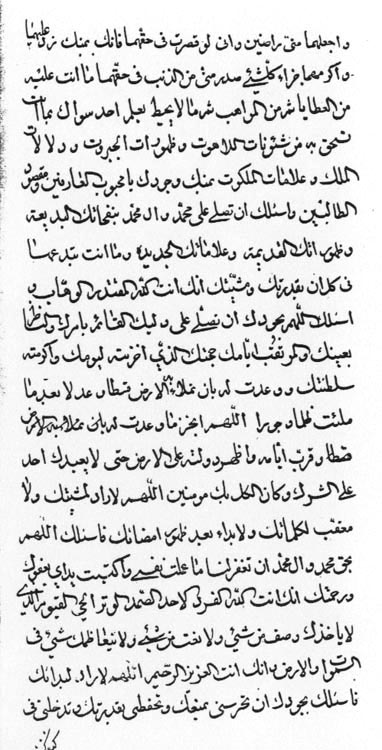 واجعلهما منى راضين وان لو قصرت فى حقهما فانك بمنك
واكرمهما جزاء كلشيئ صدر منى من الذنب فى حقهما ما انت عليه
من العطايا من المواهب شر ما لا يحيط بعلم احد سواك
تستحق به من شئونات اللاهوت وظهورات الجبروت ودلالات
الملك وعلامات الملكوت بمنك وجودك يا محبوب العارفين ومقصود
الطالبين واسئلك ان تصلى على محمد وال محمد بنفحاتك البديعة
وظهوراتك القديمة وعلاماتك الجديدة وما انت تبدعها
فى كل ان بقدرتك ومشيتك انك انت الله المقتدر الوهاب و
اسئلك اللهم بجودك ان تصلى على وليك القائم بامرك والناظر
بعينك والمرتقب ايامك حجتك الذى اخرته ليومك واكرمته
سلطنتك ووعدت له بان تملاء به الارض قسطا وعدلا بعد ما
ملئت ظلما وجورا اللهم انجز ما وعدت له بان تملاء به الارض
قسطا وقرب ايامه واظهر دولته على الارض حتى لا يعبدك احد
على الشرك وكان الكل بك مومنين اللهم لا راد لمشيتك ولا
معقب لكلماتك ولا بداء بعد ظهور امضائك فاسئلك اللهم
بحق محمد وال محمد ان تغفر لنا ما عملت نفسى واكتسبت يداى بعفوك
ورحمتك انك انت الله الفرد الاحد الصمد الوتر الحى القيوم الذى
لا ياخذك وصف من شيئ ولا نعت من شيئ ولا يتعاظمك شيئ فى
السموات والارض وانك انت العزيز الرحيم اللهم لا راد لبدائك
فاسئلك بجودك ان تحرسنى بمنعك وتحفظنى بقدرتك وتدخلنى فى